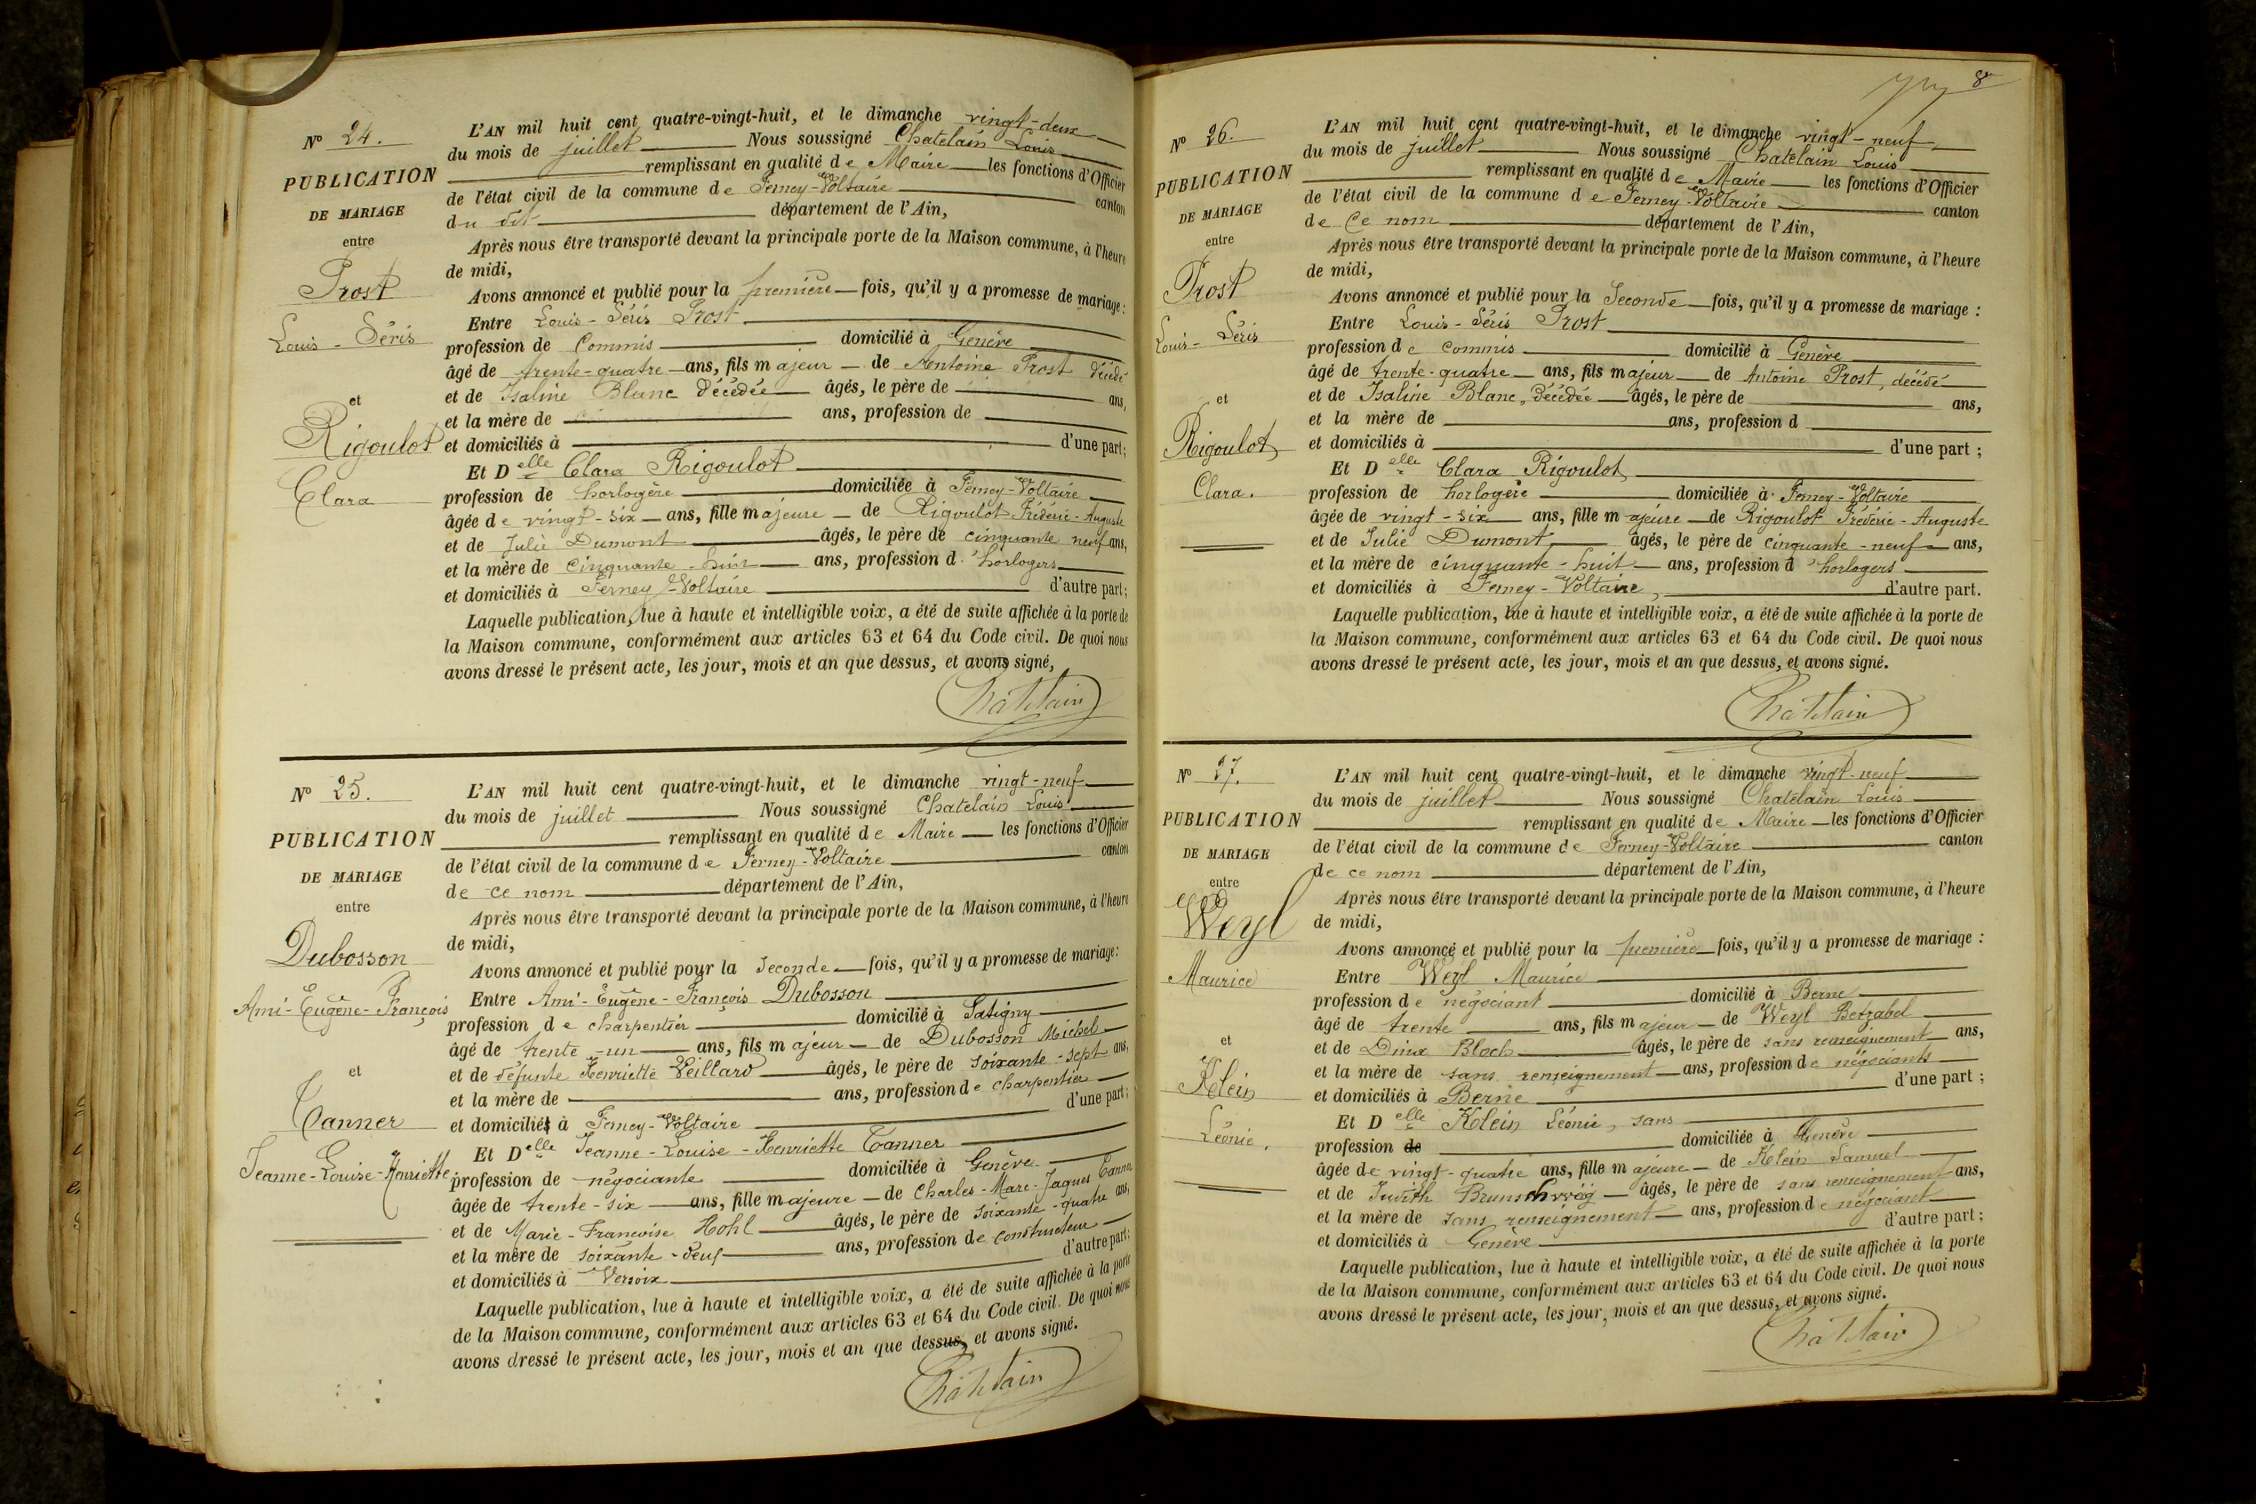 Nº 24.
PUBLICATION
DE MARIAGE
entre
Prost
Louis - Séris
et
Rigoulot
Clara
L'AN mil huit cent quatre-vingt-huit, et le dimanche vingt-deux
du mois de juillet Nous soussigné Chatelain Louis
remplissant en qualité de Maire les fonctions d'Officier
de l'état civil de la commune de Ferney-Voltaire canton
du dit département de l'Ain,
Après nous être transporté devant la principale porte de la Maison commune, à l'heure
de midi,
Avons annoncé et publié pour la première fois, qu'il y a promesse de mariage :
Entre Louis - Séris Prost
profession de Commis domicilié à Genève
âgé de trente-quatre ans, fils majeur de Antoine Prost décédé
et de Isaline Blanc décédée âgés, le père de ans,
et la mère de ans, profession de
et domiciliés à d'une part ;
Et Delle Clara Rigoulot
profession de horlogère domiciliée à Ferney-Voltaire
âgée de vingt-six ans, fille majeure de Rigoulot Frédéric-Auguste
et de Julie Dumont âgés, le père de cinquante neuf ans,
et la mère de cinquante-huit ans, profession d'horlogers
et domiciliés à Ferney-Voltaire d'autre part ;
Laquelle publication, lue à haute et intelligible voix, a été de suite affichée à la porte de
la Maison commune, conformément aux articles 63 et 64 du Code civil. De quoi nous
avons dressé le présent acte, les jour, mois et an que dessus, et avons signé,
Châtelain
Nº 25.
PUBLICATION
DE MARIAGE
entre
Dubosson
Ami-Eugène-François
et
Tanner
Jeanne-Louise-Henriette
L'AN mil huit cent quatre-vingt-huit, et le dimanche vingt-neuf
du mois de juillet Nous soussigné Chatelain Louis
remplissant en qualité de Maire les fonctions d'Officier
de l'état civil de la commune de Ferney-Voltaire canton
de ce nom département de l'Ain,
Après nous être transporté devant la principale porte de la Maison commune, à l'heure
de midi,
Avons annoncé et publié pour la seconde fois, qu'il y a promesse de mariage :
Entre Ami-Eugène-François Dubosson
profession de charpentier domicilié à Satigny
âgé de trente-un ans, fils majeur de Dubosson Michel
et de défunte Henriette Veillard âgés, le père de soixante-sept ans,
et la mère de ans, profession de charpentier
et domiciliés à Ferney-Voltaire d'une part ;
Et Delle Jeanne-Louise-Henriette Tanner
profession de négociante domiciliée à Genève
âgée de trente-six ans, fille majeure de Charles-Marc-Jaques Tanner
et de Marie-Françoise Hohl âgés, le père de soixante-quatre ans,
et la mère de soixante-deux ans, profession de constructeur
et domiciliés à Versoix d'autre part ;
Laquelle publication, lue à haute et intelligible voix, a été de suite affichée à la porte
de la Maison commune, conformément aux articles 63 et 64 du Code civil. De quoi nous
avons dressé le présent acte, les jour, mois et an que dessus, et avons signé.
Châtelain
8
Nº 26.
PUBLICATION
DE MARIAGE
entre
Prost
Louis - Séris
et
Rigoulot
Clara.
L'AN mil huit cent quatre-vingt-huit, et le dimanche vingt-neuf
du mois de juillet Nous soussigné Chatelain Louis
remplissant en qualité de Maire les fonctions d'Officier
de l'état civil de la commune de Ferney-Voltaire canton
de ce nom département de l'Ain,
Après nous être transporté devant la principale porte de la Maison commune, à l'heure
de midi,
Avons annoncé et publié pour la seconde fois, qu'il y a promesse de mariage :
Entre Louis-Séris Prost
profession de commis domicilié à Genève
âgé de trente-quatre ans, fils majeur de Antoine Prost, décédé
et de Isaline Blanc, décédée âgés, le père de ans,
et la mère de ans, profession d
et domiciliés à d'une part ;
Et Delle Clara Rigoulot
profession de horlogère domiciliée à Ferney-Voltaire
âgée de vingt-six ans, fille majeure de Rigoulot Frédéric-Auguste
et de Julie Dumont âgés, le père de cinquante-neuf ans,
et la mère de cinquante-huit ans, profession d'horlogers
et domiciliés à Ferney-Voltaire, d'autre part.
Laquelle publication, lue à haute et intelligible voix, a été de suite affichée à la porte de
la Maison commune, conformément aux articles 63 et 64 du Code civil. De quoi nous
avons dressé le présent acte, les jour, mois et an que dessus, et avons signé.
Châtelain
Nº 27.
PUBLICATION
DE MARIAGE
entre
Weyl
Maurice
et
Klein
Léonie.
L'AN mil huit cent quatre-vingt-huit, et le dimanche vingt-neuf
du mois de juillet Nous soussigné Chatelain Louis
remplissant en qualité de Maire les fonctions d'Officier
de l'état civil de la commune de Ferney-Voltaire canton
de ce nom département de l'Ain,
Après nous être transporté devant la principale porte de la Maison commune, à l'heure
de midi,
Avons annoncé et publié pour la première fois, qu'il y a promesse de mariage :
Entre Weyl Maurice
profession de négociant domicilié à Berne
âgé de trente ans, fils majeur de Weyl Betzabel
et de Dina Bloch âgés, le père de sans renseignement ans,
et la mère de sans renseignement ans, profession de négociants
et domiciliés à Berne d'une part ;
Et Delle Klein Léonie, sans
profession de domiciliée à Genève
âgée de vingt-quatre ans, fille majeure de Klein Samuel
et de Judith Brunschweig âgés, le père de sans renseignement ans,
et la mère de sans renseignement ans, profession de négociant
et domiciliés à Genève d'autre part ;
Laquelle publication, lue à haute et intelligible voix, a été de suite affichée à la porte
de la Maison commune, conformément aux articles 63 et 64 du Code civil. De quoi nous
avons dressé le présent acte, les jour, mois et an que dessus, et avons signé.
Châtelain